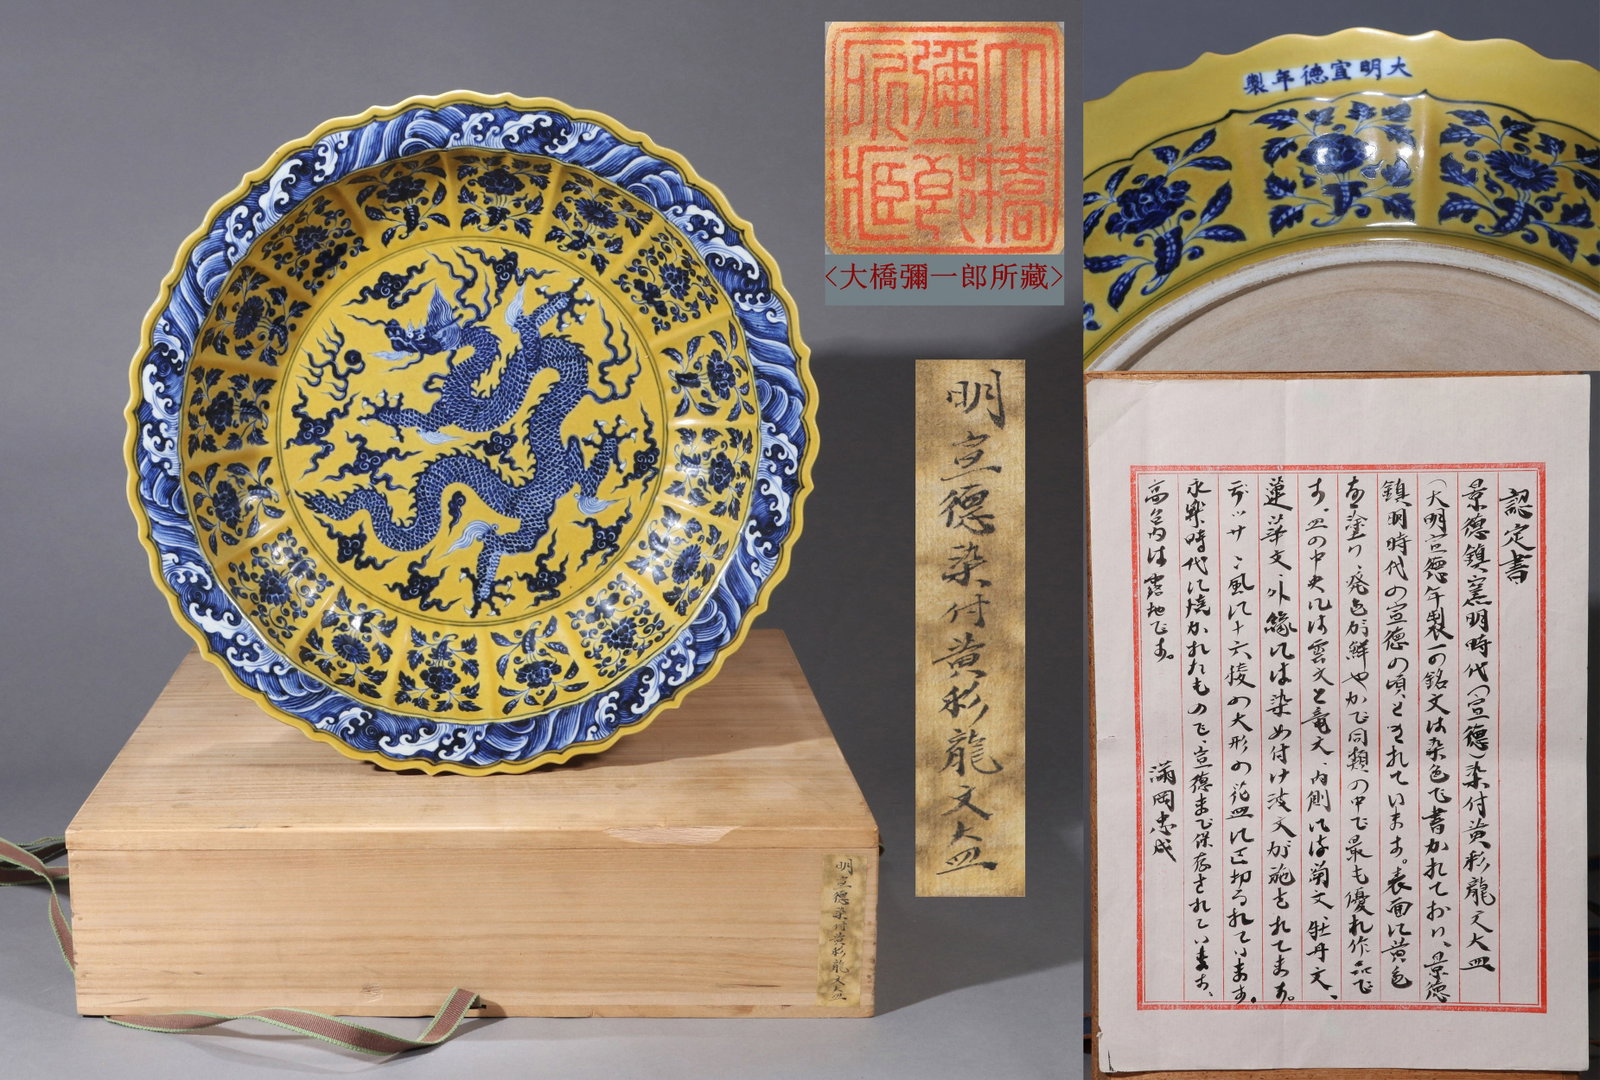 大橋
彌一郎
所藏
<大橋彌一郎所藏>
大明宣德年製
明宣德染付黄彩龍文大皿
明宣德染付黄彩龍文大皿
認定書
景德鎮窯明時代(宣德)染付黄彩龍文大皿
(大明宣徳年製)の銘文は染色で書かれており、景徳
鎮明時代の宣徳の頃、とされています。表面に黄色
を塗り、発色が鮮やかで同類の中で最も優れ作品で
す。皿の中央には雲文と竜文、内側には菊文、牡丹文、
蓮華文、外縁には染め付け波文が施されてます。
に十六稜の大形の花皿に
永楽時代に焼かれたもので、宣徳まで保存されています、
高台内は露地です。
満岡忠成